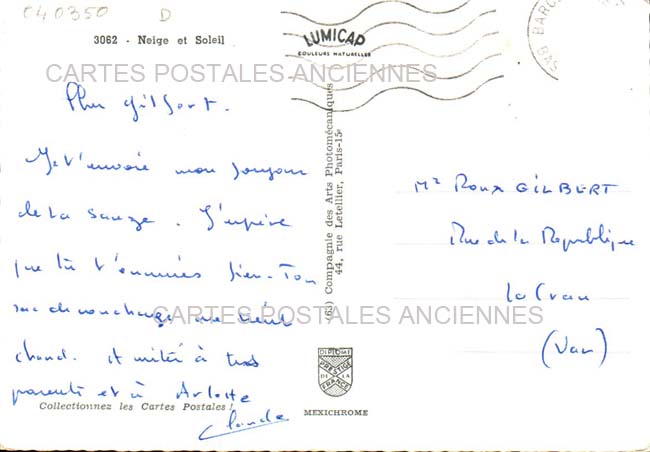 040350 D
3062 - Neige et Soleil
LUMICAP
COULEURS NATURELLES
BARC
BAS
CARTES POSTALES ANCIENNES
Cher Gilbert.
Je t'envoie mon bonjour
de la Sauze. J'espère
que tu t'ennuies bien. Ton
sac de couchage me tient
chaud. à tes
parents et à Arlette
Claude
Collectionnez les Cartes Postales !
(63) Compagnie des Arts Photomécaniques
44, rue Letellier, Paris-15e
DIPLOME
PRESTIGE
DE LA
FRANCE
MEXICHROME
Mr Roux GILBERT
Rue de la Republique
La Crau
(Var)
CARTES POSTALES ANCIENNES